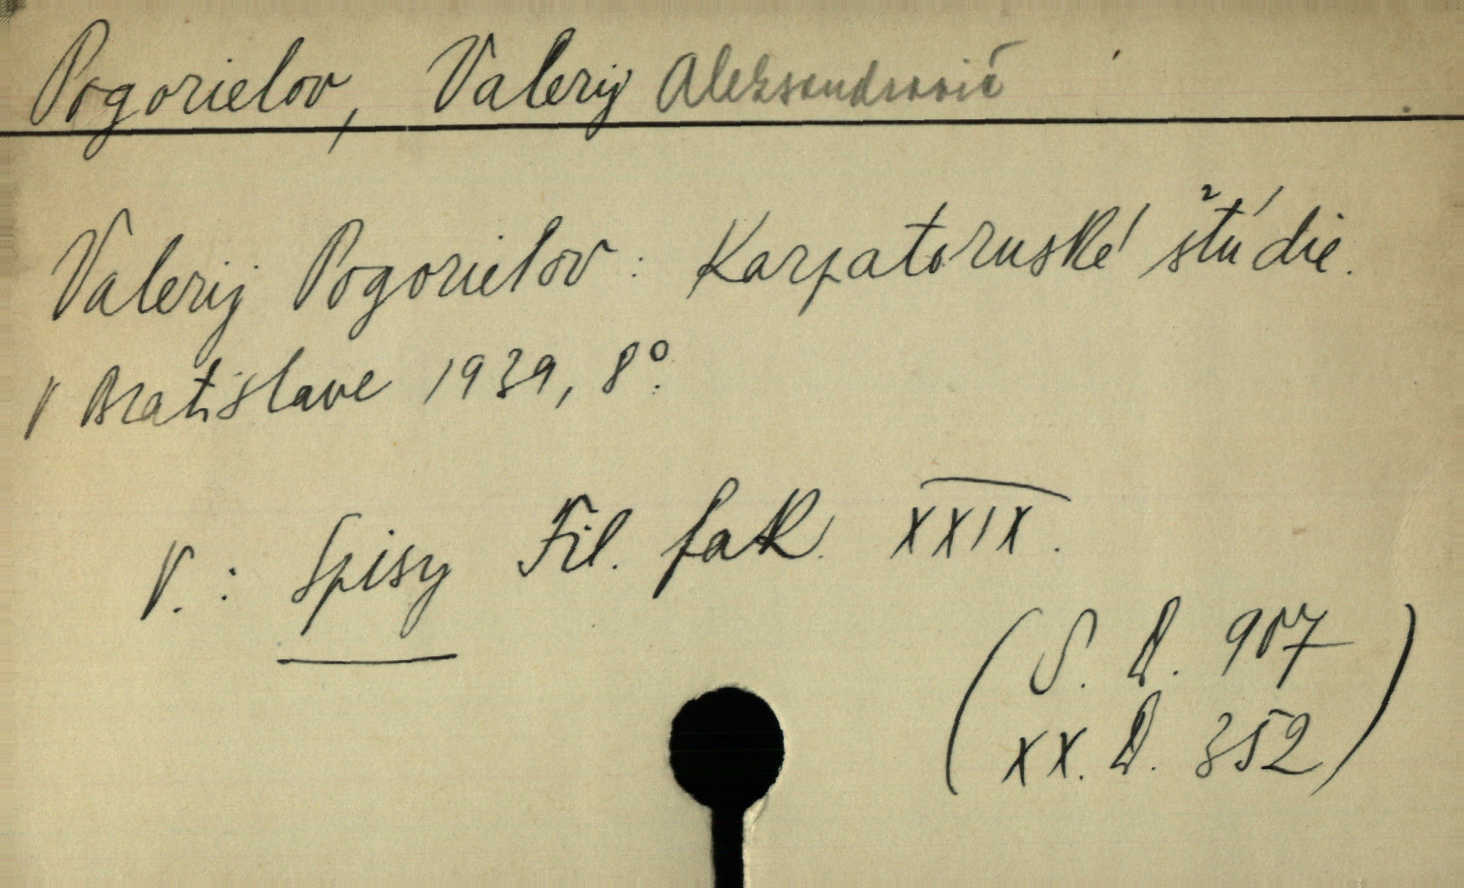 Pogorielov, Valerij Aleksandrovič
Valerij Pogorielov: Karpatoruské štúdie.
V Bratislave 1939, 8°.
V.: Spisy Fil. fak. XXIX.
(S. D. 907
XX. D. 352)